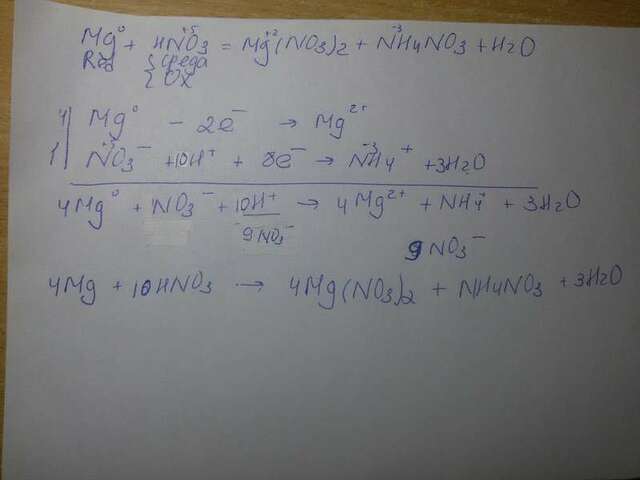 Mg⁰ + HN⁺⁵O₃ = Mg⁺²(NO₃)₂ + N⁻³H₄NO₃ + H₂O
Red { среда
{ Ox
4 | Mg⁰ - 2e⁻ → Mg²⁺
1 | N⁺⁵O₃⁻ + 10H⁺ + 8e⁻ → N⁻³H₄⁺ + 3H₂O
4Mg⁰ + NO₃⁻ + 10H⁺ → 4Mg²⁺ + NH₄⁺ + 3H₂O
9NO₃⁻ 9NO₃⁻
4Mg + 10HNO₃ → 4Mg(NO₃)₂ + NH₄NO₃ + 3H₂O